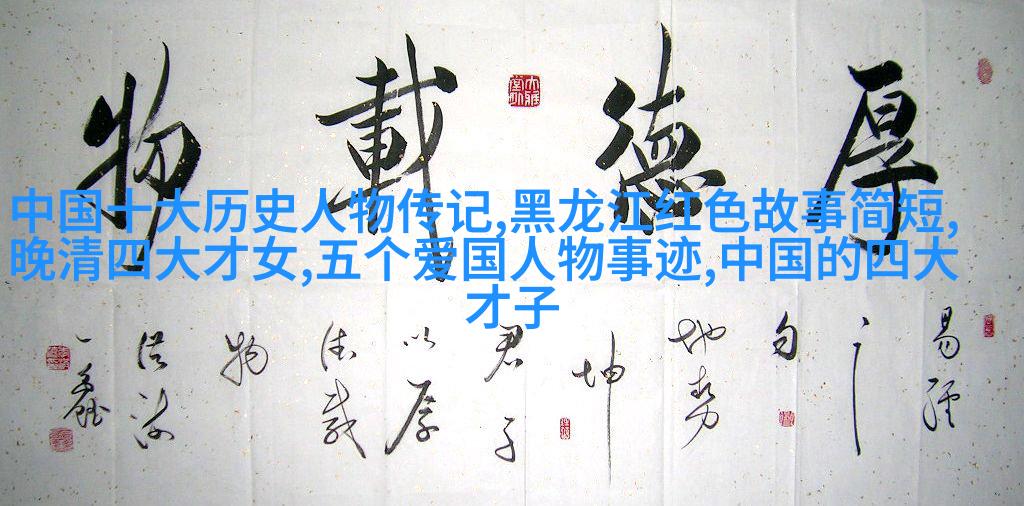 厚德載物
中国十大历史人物传记,黑龙江红色故事简短,
晚清四大才女,五个爱国人物事迹,中国的四大
才子
易經
之
句
地勢
坤
君子
以厚
德載
物